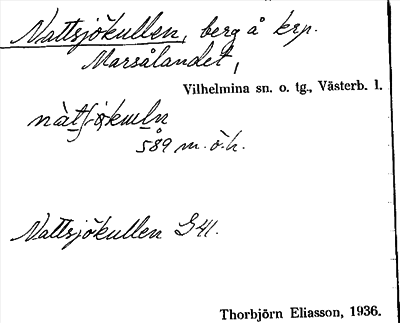 Nattsjökullen, berg å krp.
Marsålandet,
Vilhelmina sn. o. tg., Västerb. l.
589 m. ö. h.
Nattsjökullen G41.
Thorbjörn Eliasson, 1936.